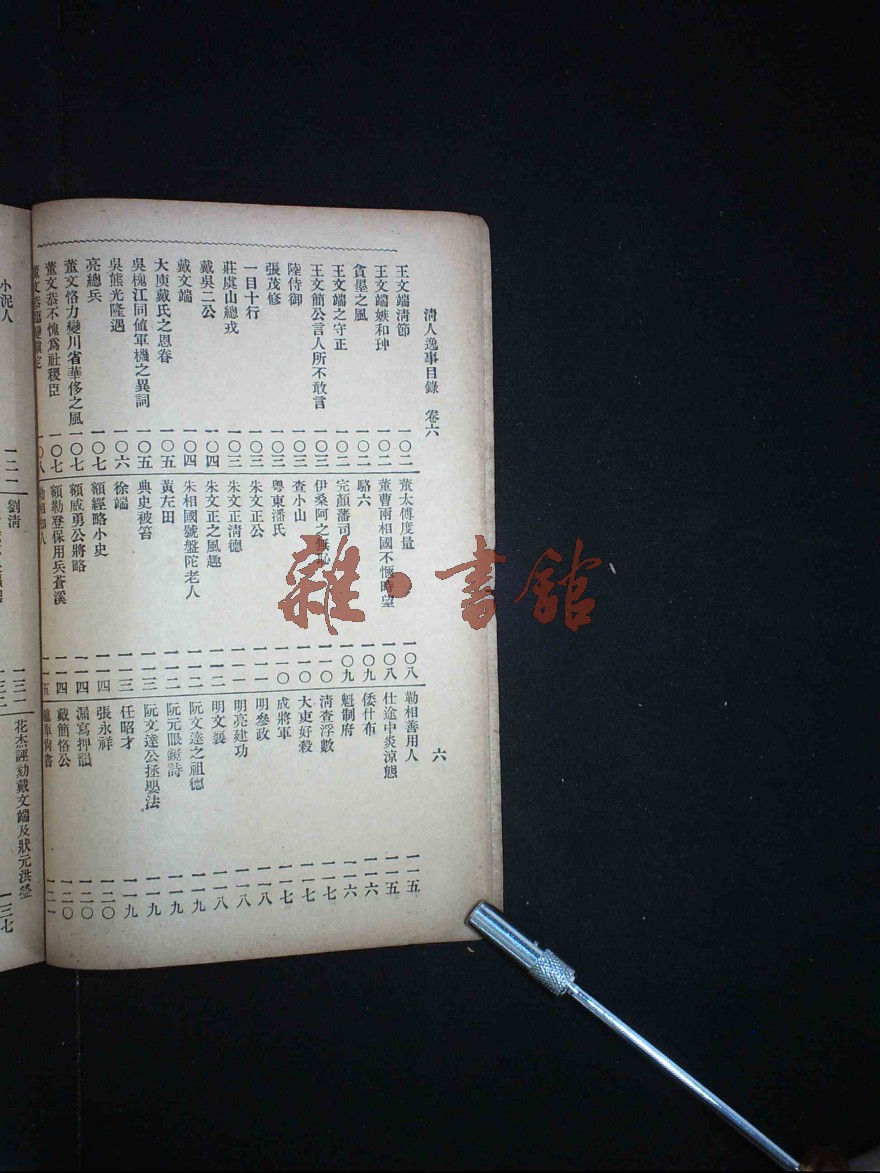 清人逸事目錄 卷六
六
王文端清節 一〇二
王文端嫉和珅 一〇二
貪墨之風 一〇二
王文端之守正 一〇二
王文簡公言人所不敢言 一〇三
陸侍御 一〇三
張茂修 一〇三
一目十行 一〇三
莊虞山總戎 一〇三
戴吳二公 一〇四
戴文端 一〇四
大庾戴氏之恩眷 一〇五
吳槐江同値軍機之異詞 一〇五
吳熊光隆遇 一〇六
亮總兵 一〇七
董文恪力變川省華侈之風 一〇七
董文恭不愧爲社稷臣 一〇七
一〇八
董太傅度量 一〇八
董曹兩相國不愜時望 一〇八
駱六 一〇九
完顏藩司 一〇九
伊桑阿之無恥 一一〇
查小山 一一〇
粵東潘氏 一一〇
朱文正公 一一一
朱文正清德 一一一
朱文正之風趣 一一二
朱相國號盤陀老人 一一二
黃左田 一一二
典史被笞 一一三
徐端 一一三
額經略小史 一一四
額威勇公將略 一一四
額勒登保用兵蒼溪 一一四
一一五
勒相善用人 一一五
仕途中炎涼態 一一五
倭什布 一一六
魁制府 一一六
清查浮數 一一七
大東好殺 一一七
成將軍 一一七
明參政 一一八
明亮建功 一一八
明文襄 一一八
阮文達之祖德 一一九
阮元眼鏡詩 一一九
阮文達公拯嬰法 一一九
任昭才 一一九
張永祥 一二〇
漏寫押韻 一二〇
戴簡恪公 一二〇
一二一
花杰誣劾戴文端及狀元洪瑩 一三七
劉清 一三一
小泥人
雜·書館